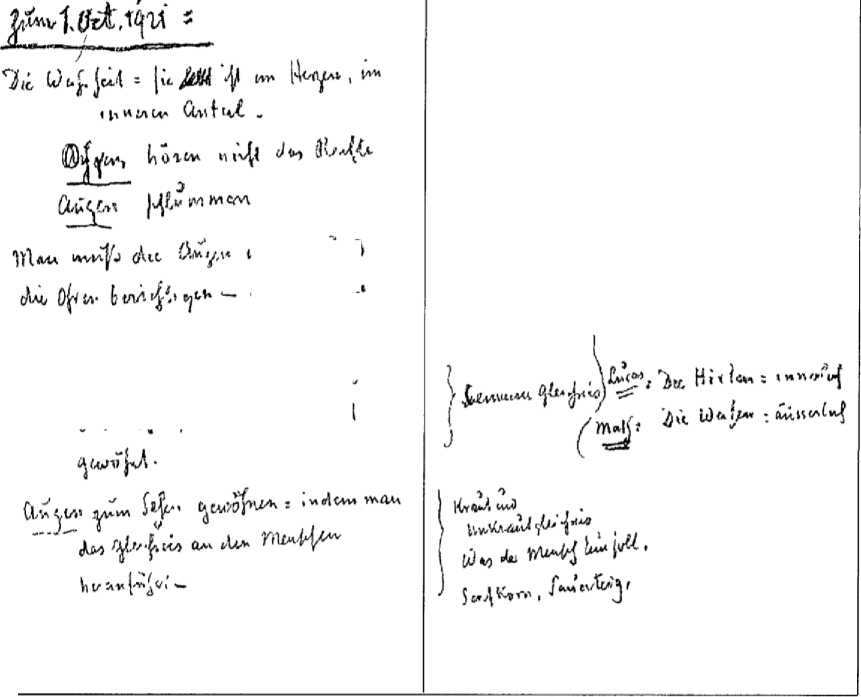 Zum 1. Oct. 1921 =
Die Wahrheit = sie ist im Herzen, im
inneren Anteil.
Ohren hören nicht das Rechte
Augen schlummern
Man muß die Augen
die Ohren berichtigen —
gewöhnt.
Augen zum Sehen gewöhnen = indem man
das Gleichnis an den Menschen
heranführt —
Lucas: Die Hirten = innerlich
Samenngleichnis
Math: Die Weisen = äusserlich
Kraut und
Unkrautgleichnis
Was der Mensch sein soll.
Senfkorn, Sauerteig,